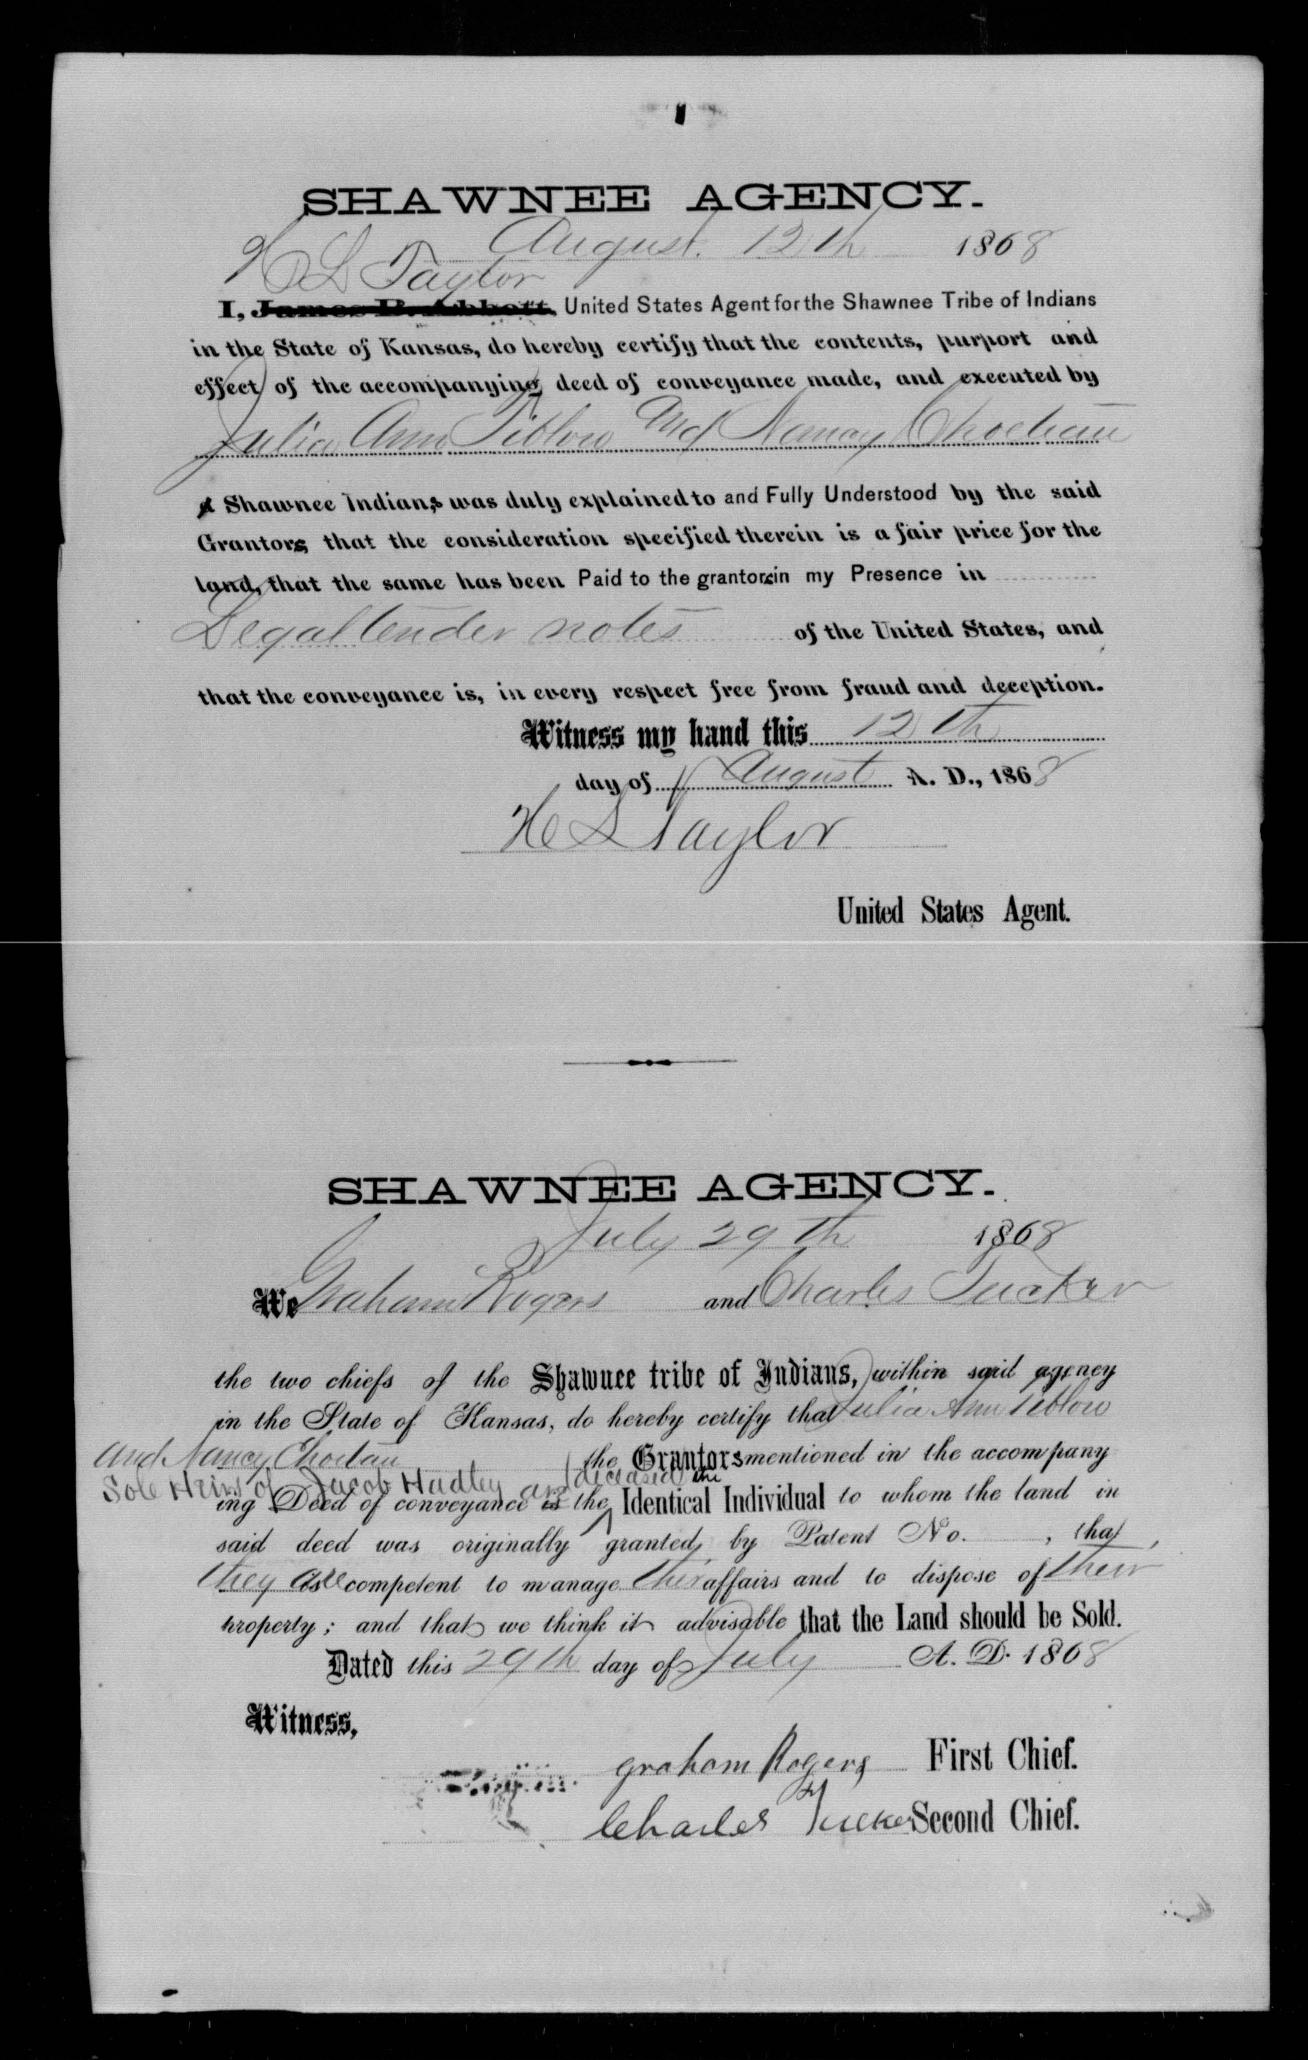 SHAWNEE AGENCY.
August 12th 1868
H L Taylor
I, James B. Abbott, United States Agent for the Shawnee Tribe of Indians
in the State of Kansas, do hereby certify that the contents, purport and
effect of the accompanying deed of conveyance made, and executed by
Julia Ann Tiblow And Nancy Choteau
A Shawnee Indians was duly explained to and Fully Understood by the said
Grantors, that the consideration specified therein is a fair price for the
land, that the same has been Paid to the grantors in my Presence in
Legal tender notes of the United States, and
that the conveyance is, in every respect free from fraud and deception.
Witness my hand this 12th
day of August A. D., 1868
H L Taylor
United States Agent.
SHAWNEE AGENCY.
July 29th 1868
We Graham Rogers and Charles Tucker
the two chiefs of the Shawnee tribe of Indians, within said agency
in the State of Kansas, do hereby certify that Julia Ann Tiblow
and Nancy Choteau the Grantors mentioned in the accompany
Sole Heirs of Jacob Hadley deceased the
ing Deed of conveyance is are the Identical Individual to whom the land in
said deed was originally granted, by Patent No. , that
they are competent to manage their affairs and to dispose of their
property; and that we think it advisable that the Land should be Sold.
Dated this 29th day of July A. D. 1868
Witness,
graham Rogers First Chief.
Charles Tucker Second Chief.